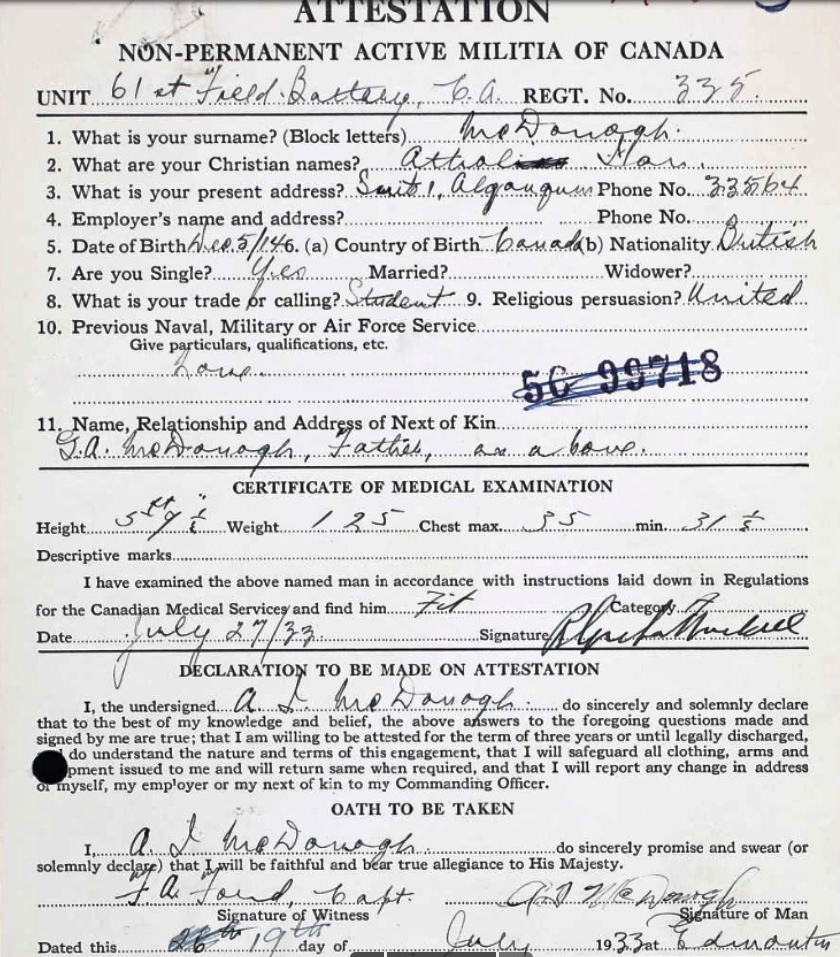 ATTESTATION
NON-PERMANENT ACTIVE MILITIA OF CANADA
UNIT 61st Field Battery, C.A. REGT. No. 335.
1. What is your surname? (Block letters) McDonogh.
2. What are your Christian names?
3. What is your present address? Suite 1, Algonquin Phone No. 33564
4. Employer's name and address? Phone No.
5. Date of Birth Dec. 5/14 6. (a) Country of Birth Canada (b) Nationality British
7. Are you Single? Yes Married? Widower?
8. What is your trade or calling? Student 9. Religious persuasion? United
10. Previous Naval, Military or Air Force Service
Give particulars, qualifications, etc.
None.
5C 99718
11. Name, Relationship and Address of Next of Kin
G.A. McDonogh, Father, as above.
CERTIFICATE OF MEDICAL EXAMINATION
Height 5 ft 7 ½" Weight 125 Chest max. 35 min. 31 ½
Descriptive marks
I have examined the above named man in accordance with instructions laid down in Regulations
for the Canadian Medical Services and find him Fit Category A
Date July 27/33 Signature
DECLARATION TO BE MADE ON ATTESTATION
I, the undersigned A. I. McDonogh. do sincerely and solemnly declare
that to the best of my knowledge and belief, the above answers to the foregoing questions made and
signed by me are true; that I am willing to be attested for the term of three years or until legally discharged,
do understand the nature and terms of this engagement, that I will safeguard all clothing, arms and
pment issued to me and will return same when required, and that I will report any change in address
of myself, my employer or my next of kin to my Commanding Officer.
OATH TO BE TAKEN
I, A. I. McDonogh. do sincerely promise and swear (or
solemnly declare) that I will be faithful and bear true allegiance to His Majesty.
F. A. Ford, Capt. A I McDonogh
Signature of Witness Signature of Man
Dated this 19th day of July 1933 at Edmonton